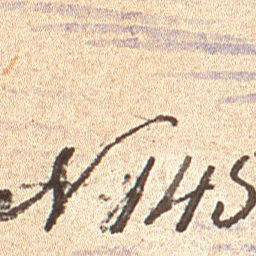 N 145